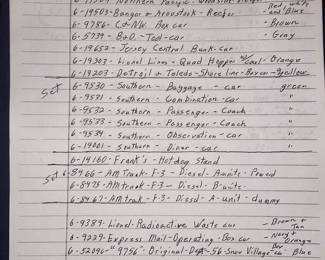 Northern Pacific
Red white
6-19503-Bangor & Aroostook-Reefer and Blue
6-9786-C&NW. Box car - Brown
6-5739-B&O.-Tool-car - Gray
6-19652-Jersey Central Bunk-car
6-19303-Lionel Lines-Quad Hopper w/coal-Orange
6-19203-Detroit & Toledo-Shore line-Boxcar-Yellow
Set 6-9530-Southern-Baggage-car green
6-9531-Southern-Combination car "
6-9532-Southern-Passenger-Coach "
6-9533-Southern-Passenger-Coach "
6-9534-Southern-Observation-car "
6-19001-Southern-Diner-car "
6-14160-Frank's-Hotdog Stand
Set 6-8466-Amtrak-F-3-Diesel-A unit-Pow'd
6-8475-Amtrack-F-3-Diesel-B-unit-
6-8467-Amtrak-F-3-Diesel-A-unit-dummy
6-9389-Lionel-Radioactive Waste car - Brown & Tan
6-9229-Express Mail-Operating-Box car - Navy & Orange
6-52096-"9756" Original-Dept-56-Snow Village Box car Blue